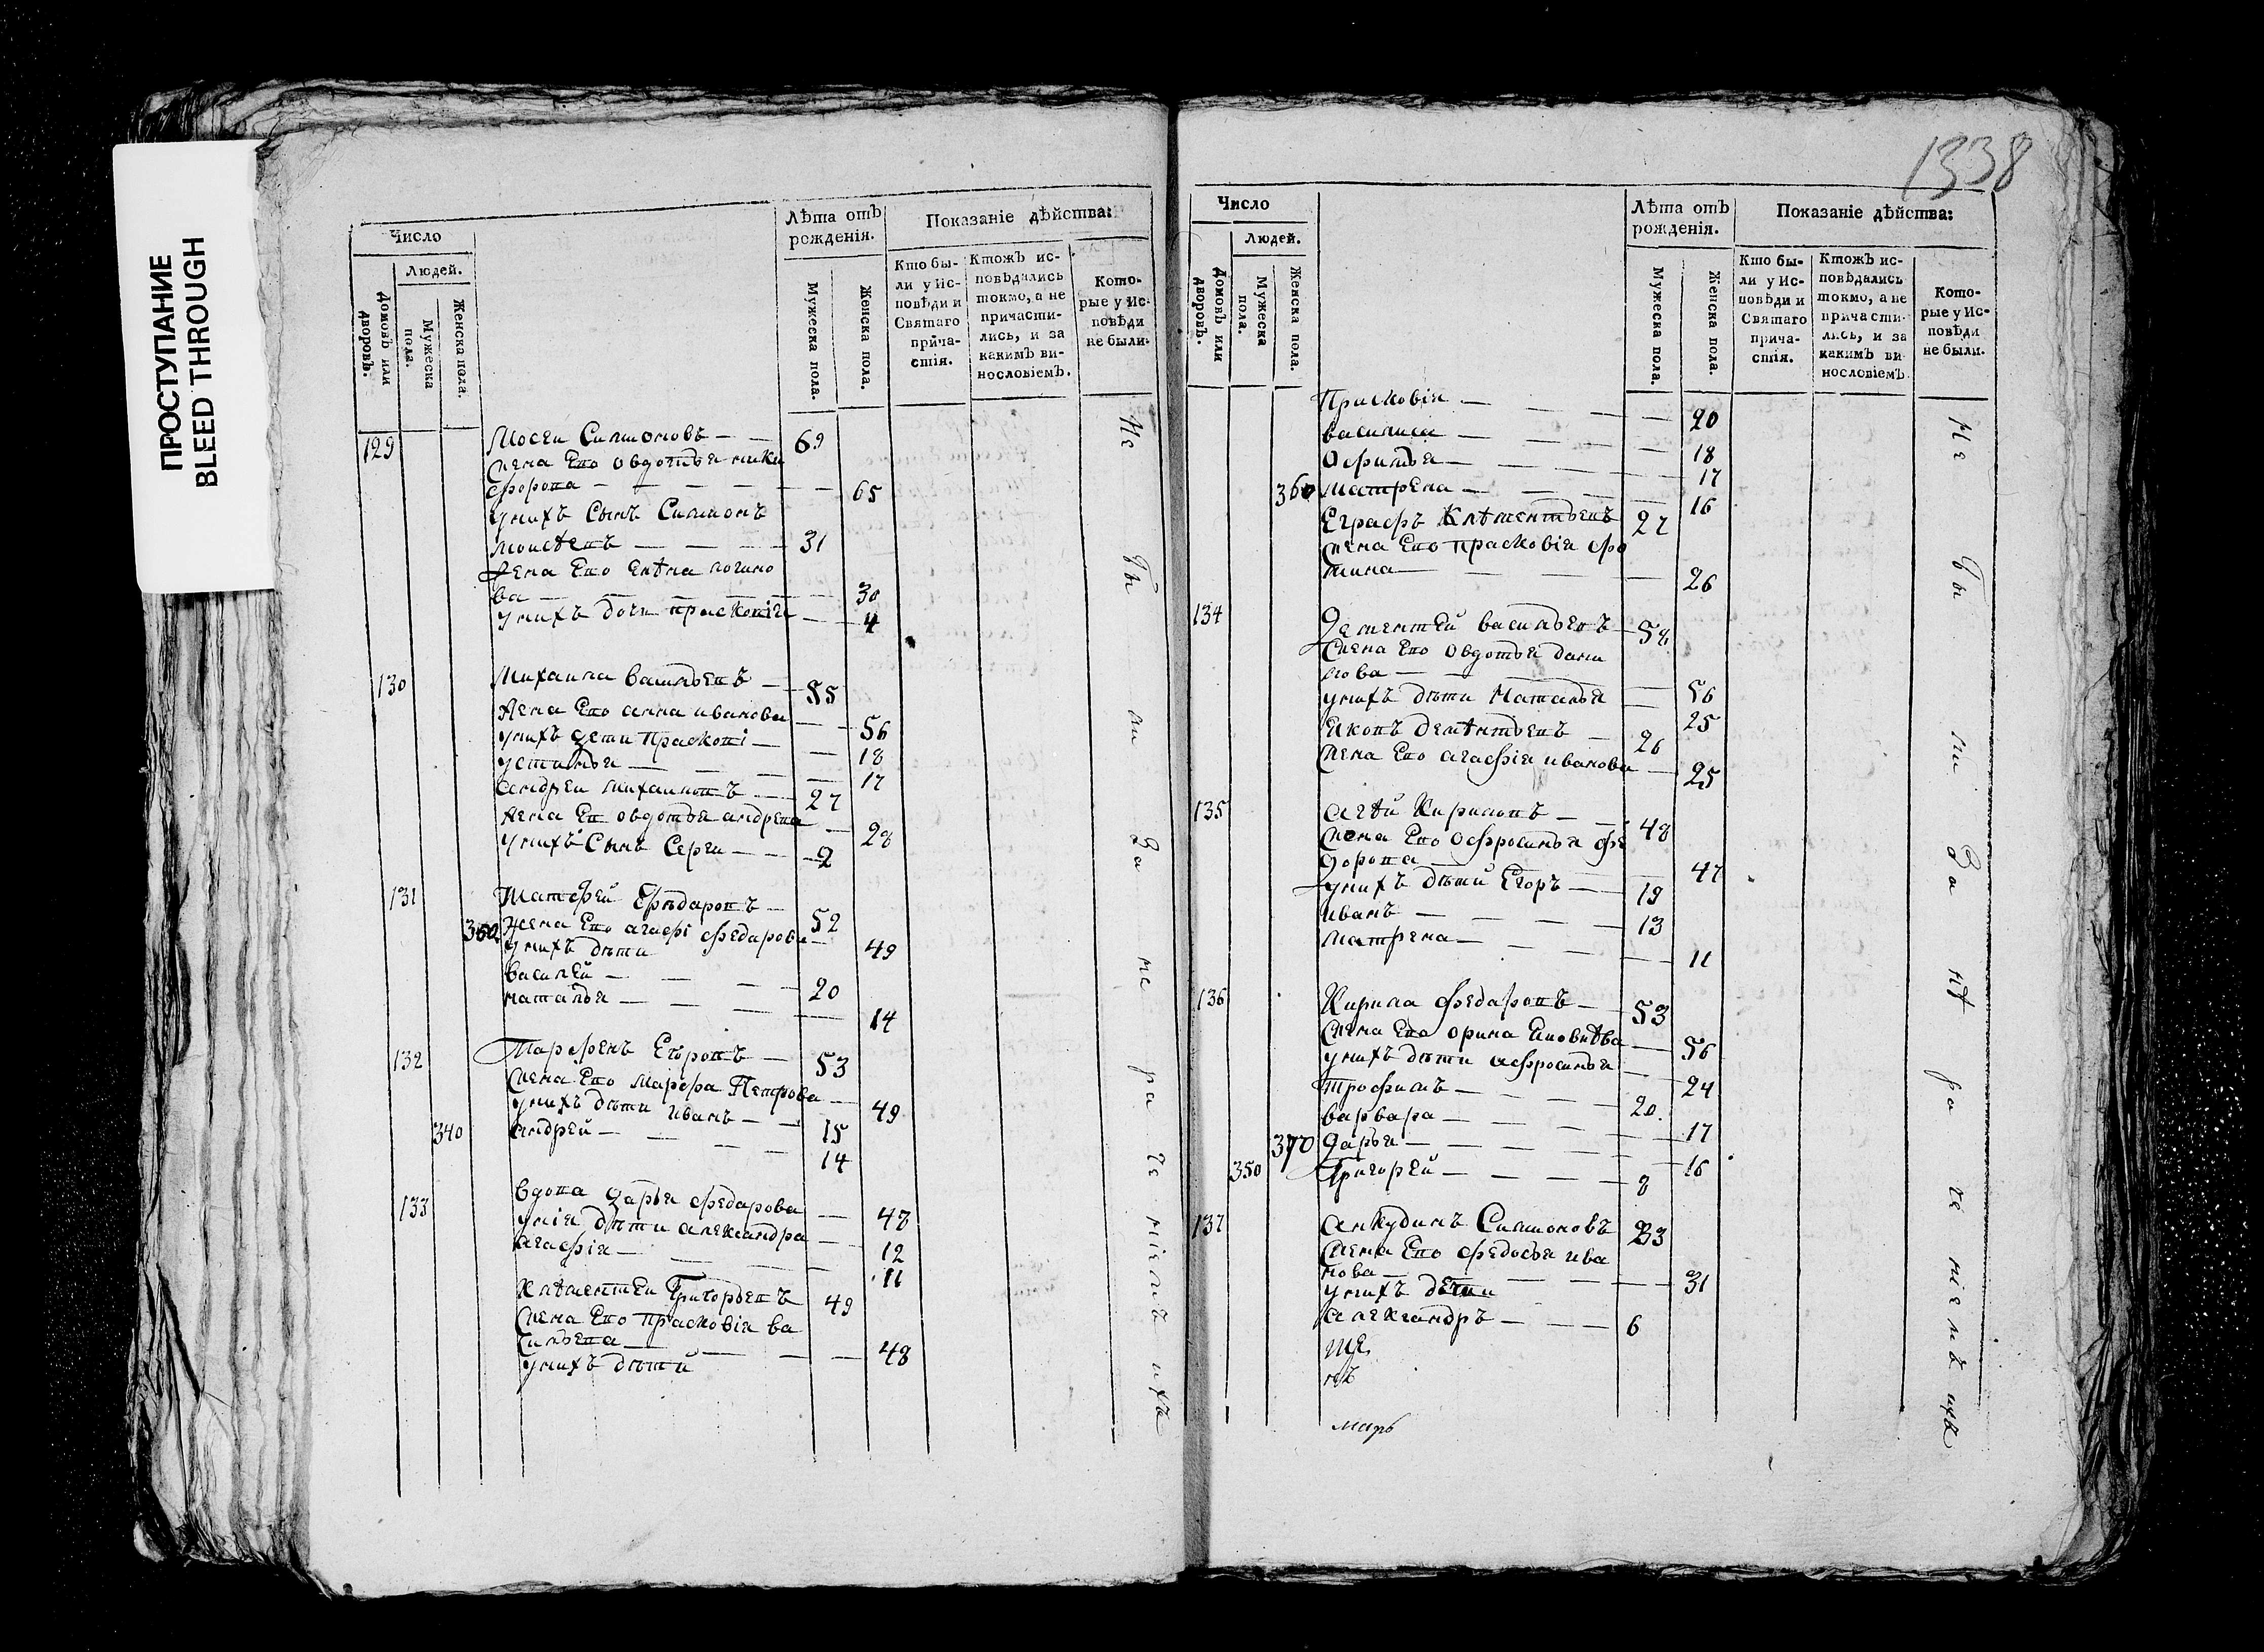 ПРОСТУПАНИЕ
BLEED THROUGH
1338
Число
Людей.
Домовъ или дворовъ.
Мужеска пола.
Женска пола.
Лѣта отъ рожденія.
Мужеска пола.
Женска пола.
Показаніе дѣйства:
Кто бы-
ли у Ис-
повѣди и
Святаго
прича-
стія.
Ктожъ ис-
повѣдались
токмо, а не
причасти-
лись, и за
какимъ ви-
нословіемъ.
Кото-
рые у Ис-
повѣди
не были.
129 Мосеи Симионовъ 69
жена Ево овдотья ники
форова 65
унихъ Сынъ Симионъ
моисѣевъ 31
жена Ево елѣна логино
ва 30
унихъ дочи прасковія 4
130 Михаила васильевъ 55
жена Ево анна иванова 56
унихъ дети Праскові 18
устинья 17
андреи михаиловъ 27
жена Ев овдотья андрева 28
унихъ Сынъ Сергеи 2
131 Матфей 52
360 жена Ево агафі федарова 49
унихъ дѣти
василей 20
наталья 14
132 Парфенъ Егоровъ 53
жена Ево марфа Петрова 49
унихъ дѣти иванъ 15
340 андрей 14
133 вдова дарья федарова 48
унія дѣти александра 12
агафія 11
Клѣментеи Григорьевъ 49
жена Ево прасковія ва
сильева 48
унихъ дѣтй
Не бы ли За не ра че ніемъ ихъ
Число
Людей.
Домовъ или дворовъ.
Мужеска пола.
Женска пола.
Лѣта отъ рожденія.
Мужеска пола.
Женска пола.
Показаніе дѣйства:
Кто бы-
ли у Ис-
повѣди и
Святаго
прича-
стія.
Ктожъ ис-
повѣдались
токмо, а не
причасти-
лись, и за
какимъ ви-
нословіемъ
Кото-
рые у Ис-
повѣди
не были.
Прасковія 20
василиса 18
Офимья 17
360 матрена 16
Еграфъ Клѣментьевъ 27
жена Ево прасковія фо
тина 26
134 Дементей васильевъ 58
жена Ево овдотья дани
лова 56
унихъ дѣти Наталья 25
Яковъ демѣнтьевъ 26
жена Ево агафія иванова 25
135 агѣй Кириловъ 48
жена Ево Офросинья фе
дорова 47
унихъ дѣтй Егоръ 19
иванъ 13
матрена 11
136 Кирила федаровъ 53
жена Ево орина 56
унихъ дѣти афросинья 24
трофимъ 20
варвара 17
370 дарья 16
350 Григорей 8
137 анкудинъ Симионовъ 33
жена Ево федосья ива
нова 31
унихъ дѣти
александръ 6
марь
Не бы ли За нѣ ра че ніемъ ихъ